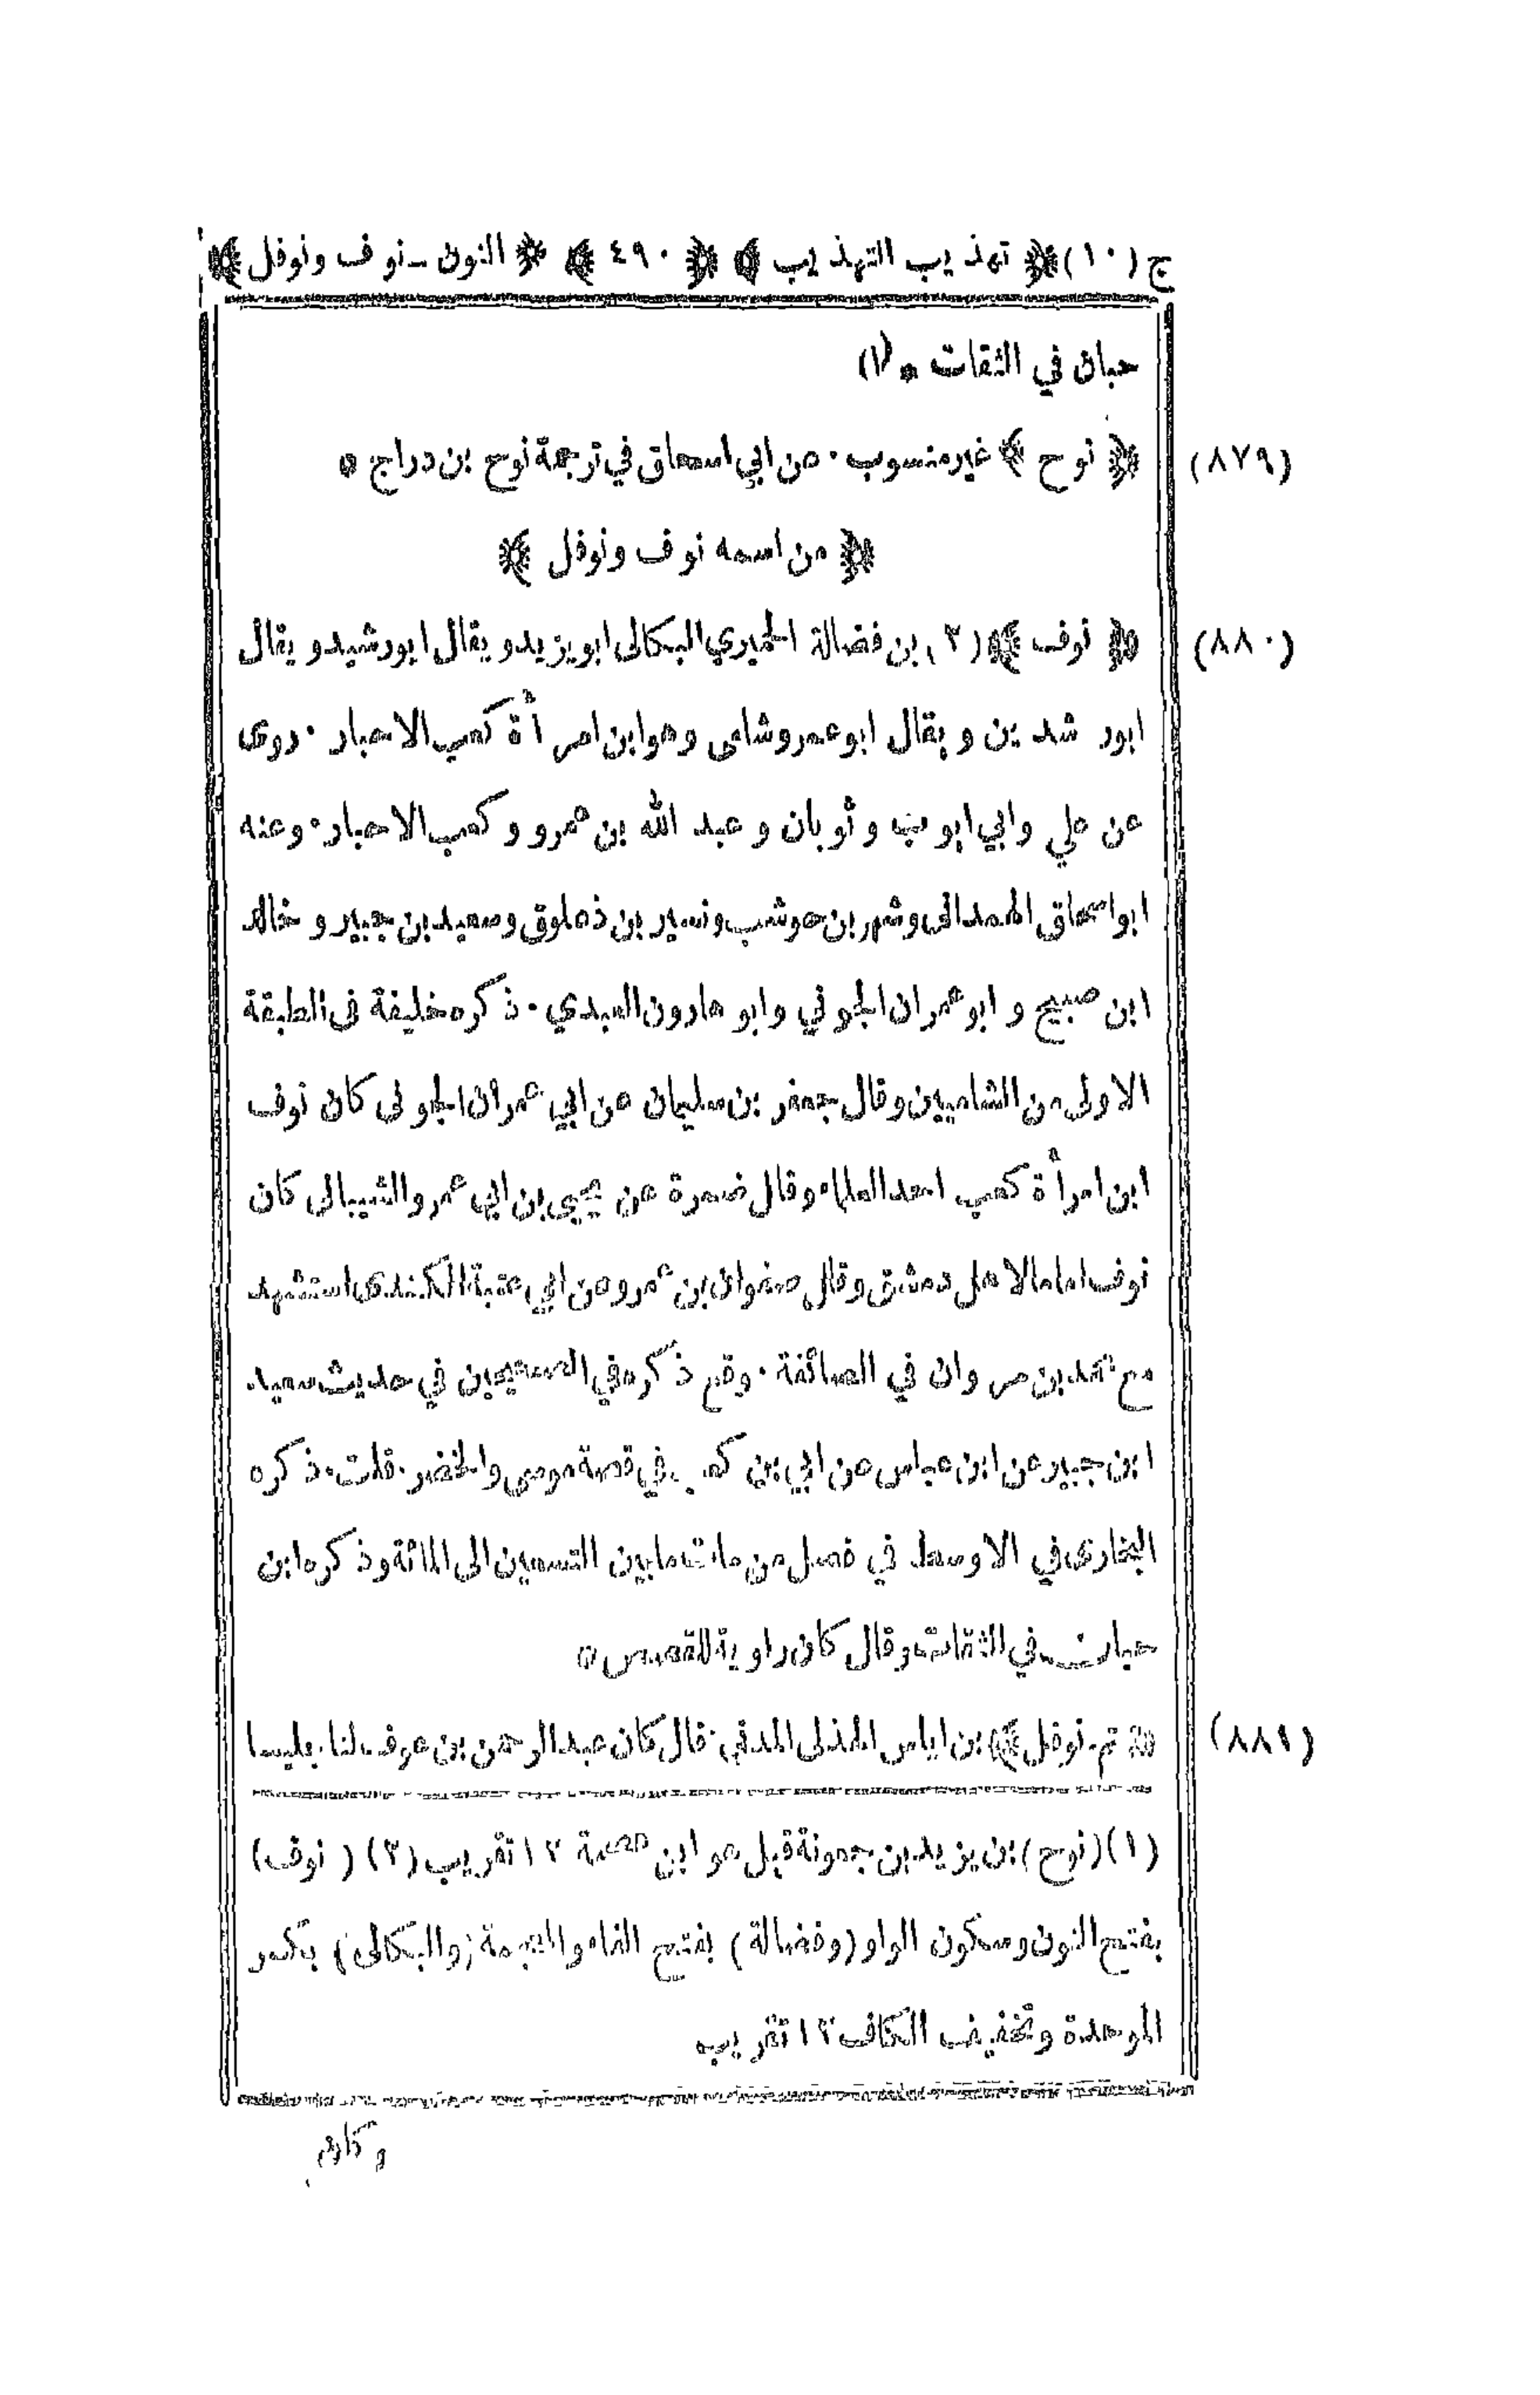 ج (١٠) ﴿ تهذيب التهذيب ﴾ ﴿ ٤٩٠ ﴾ ﴿ النون - نوف ونوفل ﴾
حبان في الثقات * (١)
(٨٧٩) ﴿ نوح ﴾ غير منسوب . عن ابي اسحاق في ترجمة نوح بن دراج *
﴿ من اسمه نوف ونوفل ﴾
(٨٨٠) ﴿ نوف ﴾ (٢) بن فضالة الحميري البكالى ابو يزيد ويقال ابو رشيد ويقال
ابو رشدين ويقال ابو عمرو شامى وهو ابن امرأة كعب الاحبار . روى
عن علي وابي ايوب وثوبان وعبد الله بن عمرو وكعب الاحبار . وعنه
ابو اسحاق الهمدانى وشهر بن حوشب ونسير بن ذعلوق وسعيد بن جبير وخالد
ابن صبيح وابو عمران الجوني وابو هارون العبدي . ذكره خليفة فى الطبقة
الاولى من الشاميين وقال جعفر بن سليمان عن ابي عمران الجونى كان نوف
ابن امرأة كعب احد العلماء وقال ضمرة عن يحيى بن ابي عمرو الشيبانى كان
نوف اماما لاهل دمشق وقال صفوان بن عمرو عن ابي عتبة الكندى استشهد
مع محمد بن مروان في الصائفة . وقع ذكره في الصحيحين في حديث سعيد
ابن جبير عن ابن عباس عن ابي بن كعب في قصة موسى والخضر . قلت . ذكره
البخارى في الاوسط في فصل من مات ما بين التسعين الى المائة وذكره ابن
حبان في الثقات وقال كان راوية للقصص *
(٨٨١) ﴿ تم - نوفل ﴾ بن اياس الهذلى المدني . قال كان عبد الرحمن بن عوف لنا جليسا
(١) (نوح) بن يزيد بن جعونة قيل هو ابن عصمة ١٢ تقريب (٢) (نوف)
بفتح النون وسكون الواو (وفضالة) بفتح الفاء والمعجمة (والبكالى) بكسر
الموحدة وتخفيف الكاف ١٢ تقريب